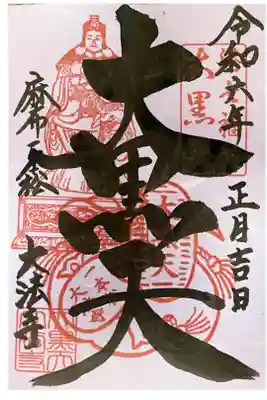 令和六年 正月吉日
大黒天
麻布 大法寺
大黒